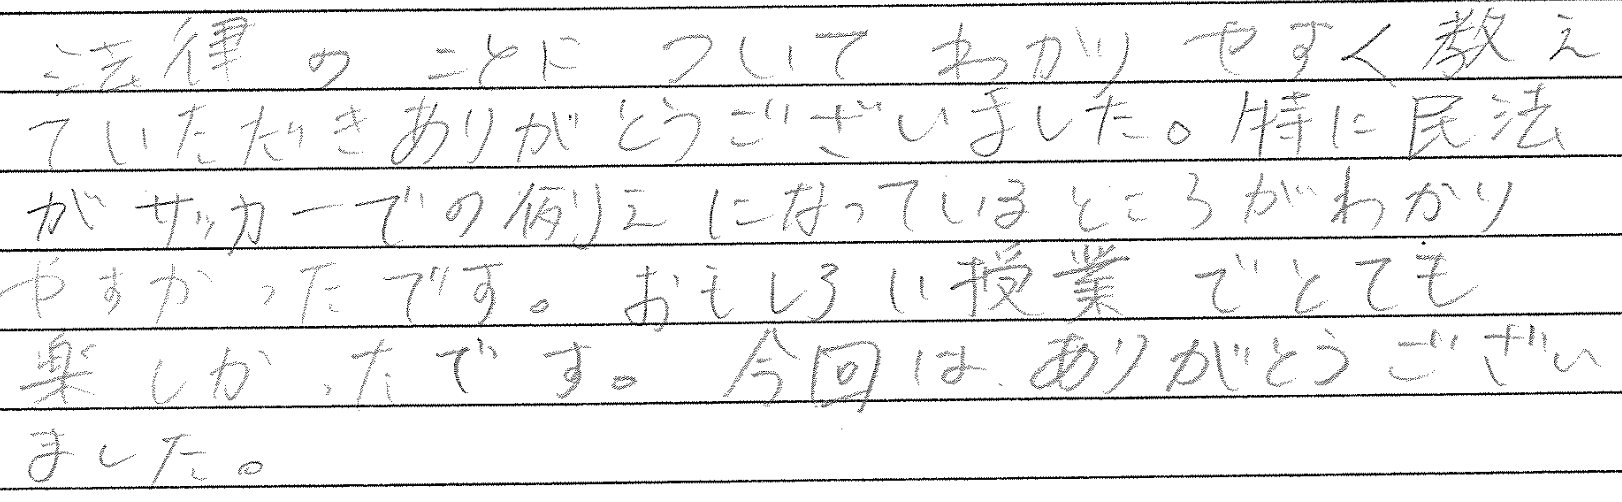 法律のことについてわかりやすく教え
ていただきありがとうございました。特に民法
がサッカーでの例えになっているところがわかり
やすかったです。おもしろい授業でとても
楽しかったです。今回はありがとうござい
ました。